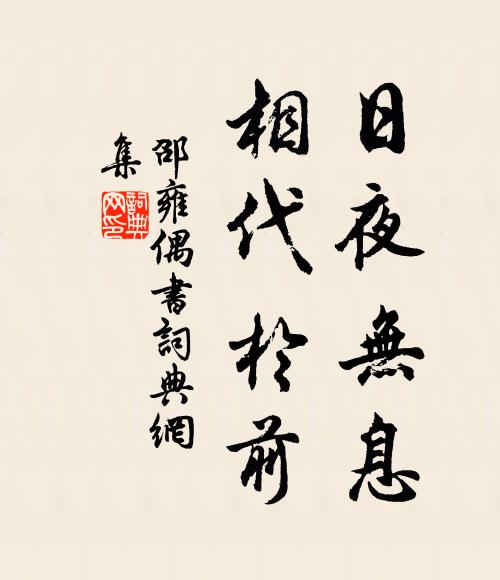 日夜無息
相代於前
邵雍偶書詞典網
集
詞典
网印